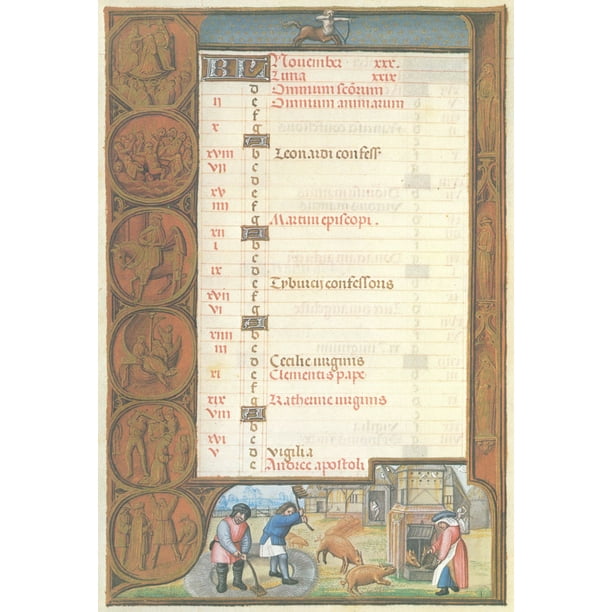 KL November xxx.
Luna xxix
d Omnium scõrum
ii e Omnium animarum
f
x g
A
xviii b Leonardi confess
vii c
d
xv e
iiii f
g Martini episcopi.
xii A
i b
c
ix d
e Tyburcij confessoris
xvii f
vi g
A
xiiii b
iii c
d Cecilie virginis
xi e Clementis pape
f
xix g Katherine virginis
viii A
b
xvi c
v d Vigilia
e Andree apostoli